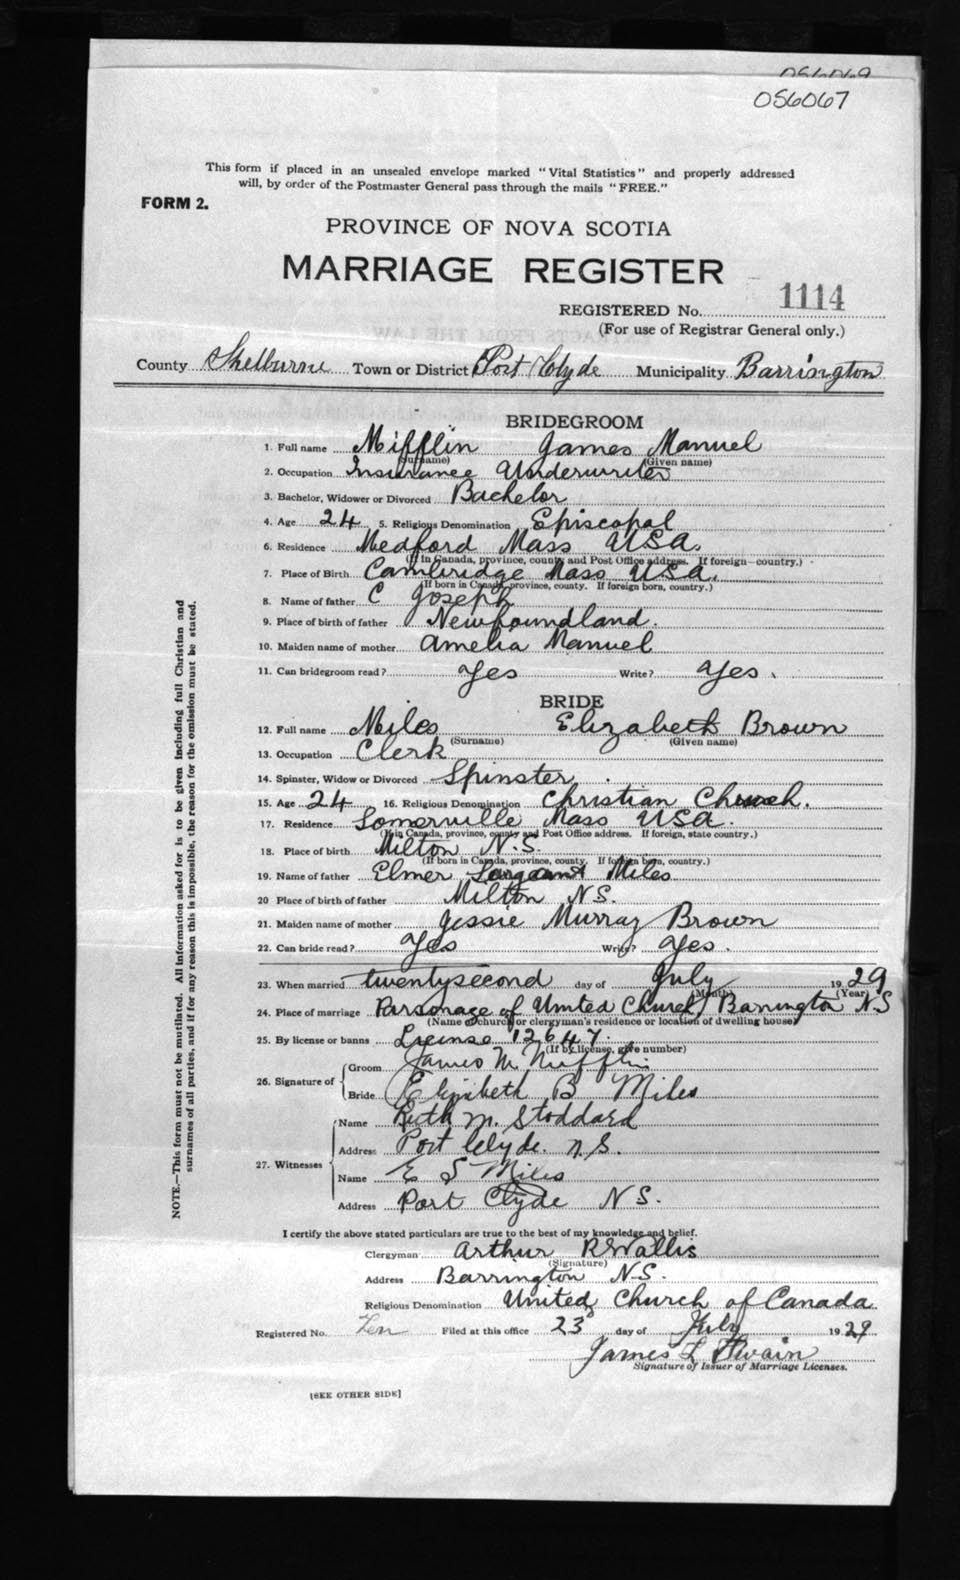 056069
056067
This form if placed in an unsealed envelope marked "Vital Statistics" and properly addressed
will, by order of the Postmaster General pass through the mails "FREE."
FORM 2.
PROVINCE OF NOVA SCOTIA
MARRIAGE REGISTER
REGISTERED No. 1114
(For use of Registrar General only.)
County Shelburne Town or District Port Clyde Municipality Barrington
BRIDEGROOM
1. Full name Mifflin James Manuel
(Surname) (Given name)
2. Occupation Insurance Underwriter
3. Bachelor, Widower or Divorced Bachelor
4. Age 24 5. Religious Denomination Episcopal
6. Residence Medford Mass USA.
(If in Canada, province, county and Post Office address. If foreign—country.)
7. Place of Birth Cambridge Mass USA.
(If born in Canada, province, county. If foreign born, country.)
8. Name of father C Joseph
9. Place of birth of father Newfoundland.
10. Maiden name of mother Amelia Manuel
11. Can bridegroom read? Yes Write? Yes.
BRIDE
12. Full name Miles Elizabeth Brown
(Surname) (Given name)
13. Occupation Clerk
14. Spinster, Widow or Divorced Spinster
15. Age 24 16. Religious Denomination Christian Church.
17. Residence Somerville Mass USA.
(If in Canada, province, county and Post Office address. If foreign, state country.)
18. Place of birth Milton N.S.
(If born in Canada, province, county. If foreign born, country.)
19. Name of father Elmer Sargeant Miles
20 Place of birth of father Milton NS.
21. Maiden name of mother Jessie Murray Brown
22. Can bride read? Yes Write? Yes.
23. When married twentysecond day of July 1929
(Month) (Year)
24. Place of marriage Parsonage of United Church Barrington N.S
(Name of church or clergyman's residence or location of dwelling house)
25. By license or banns License 12647.
(If by license, give number)
26. Signature of Groom James M. Mifflin
Bride Elizabeth B Miles
27. Witnesses Name Ruth M. Stoddard
Address Port Clyde. N.S.
Name E S Miles
Address Port Clyde N S.
I certify the above stated particulars are true to the best of my knowledge and belief.
Clergyman Arthur R Wallis
(Signature)
Address Barrington N.S.
Religious Denomination United Church of Canada
Registered No. Ten Filed at this office 23d day of July 1929
James L Swain
Signature of Issuer of Marriage Licenses.
[SEE OTHER SIDE]
NOTE.—This form must not be mutilated. All information asked for is to be given including full Christian and
surnames of all parties, and if for any reason this is impossible, the reason for the omission must be stated.